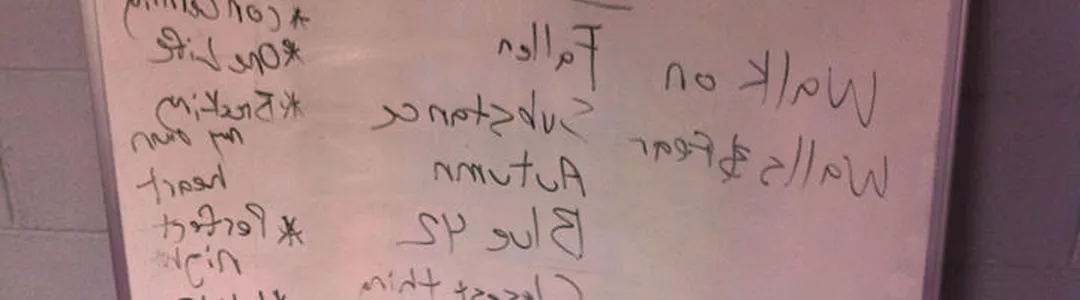 Walk on
Walls & Fear
Fallen
Substance
Autumn
Blue 42
Closest thin
*Concerning
*One Life
*Breaking
my own
heart
*Perfect
night